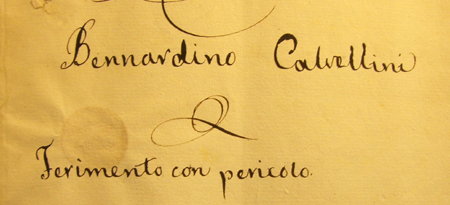 Bernardino Calvellini
Ferimento con pericolo.